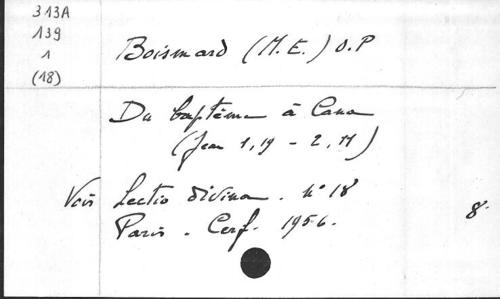 313A
139
1
(18)
Boismard (M.E.) O.P
Du baptême à Cana
(Jean 1,19 - 2,11)
Voir Lectio divina. n° 18
Paris. Cerf. 1956.
8°